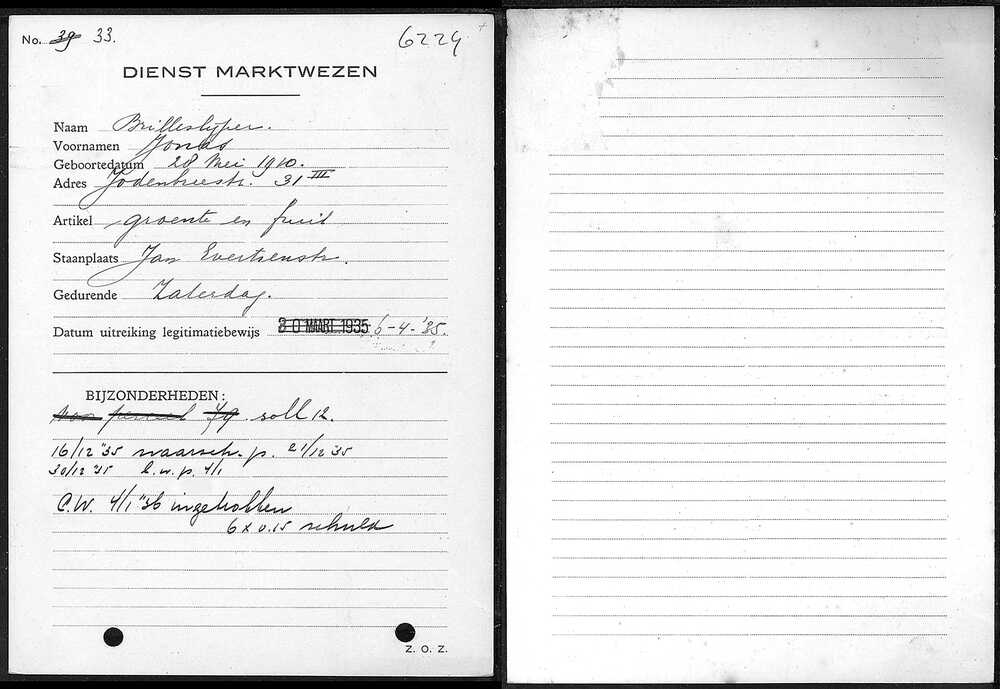 No. 39 33.
6224
DIENST MARKTWEZEN
Naam Brilleslyper.
Voornamen Jonas
Geboortedatum 28 Mei 1910.
Adres Jodenbreestr. 31 III
Artikel groente en fruit
Staanplaats Jan Evertsenstr.
Gedurende Zaterdag.
Datum uitreiking legitimatiebewijs 30 MAART 1935 6-4-'35.
BIJZONDERHEDEN:
soll 12.
16/12 '35 waarsch. p. 21/12 '35
30/12 '35 b.w.p. 4/1
C.W. 4/1 '36 ingetrokken
6 x 0.15 schuld
Z. O. Z.